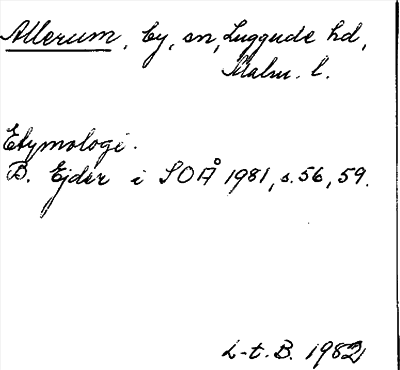 Allerum, by, sn, Luggude hd,
Malm. l.
Etymologi.
B. Ejder i SOÅ 1981, s. 56, 59.
L-t. B. 1982